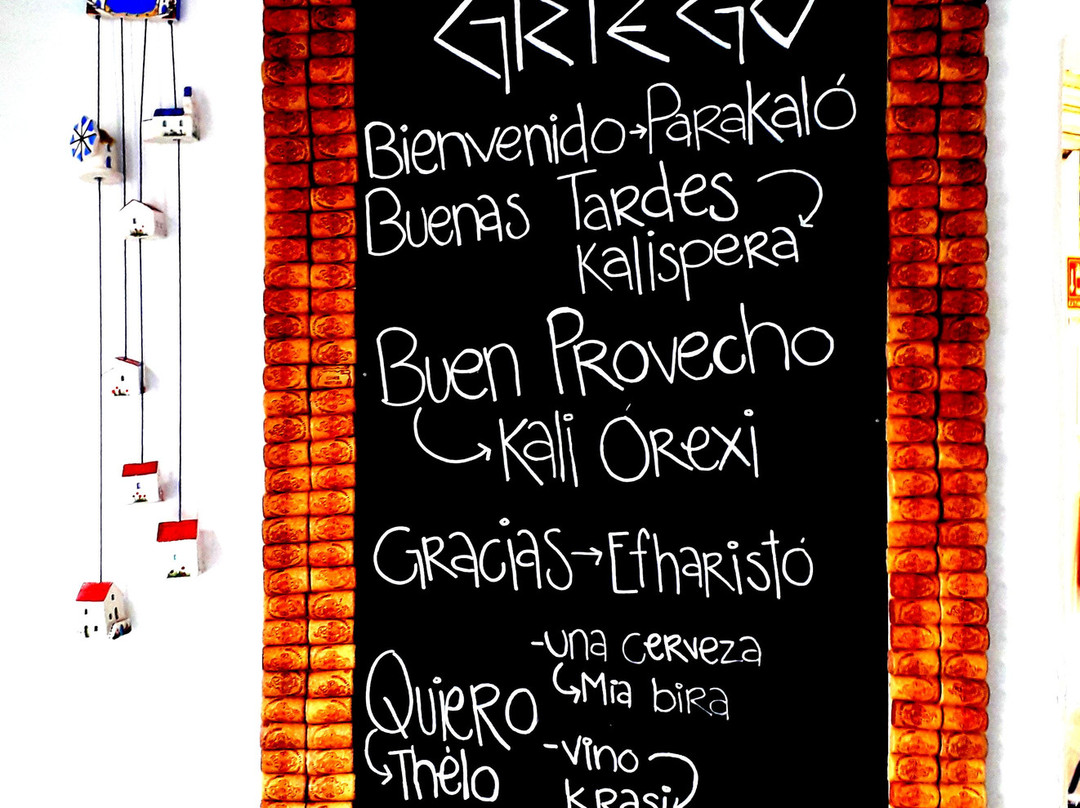 GRIEGO
Bienvenido→Parakaló
Buenas Tardes
Kalispera
Buen Provecho
Kali Órexi
Gracias→Efharistó
Quiero
Thélo
-una cerveza
Mia bira
-vino
Krasi